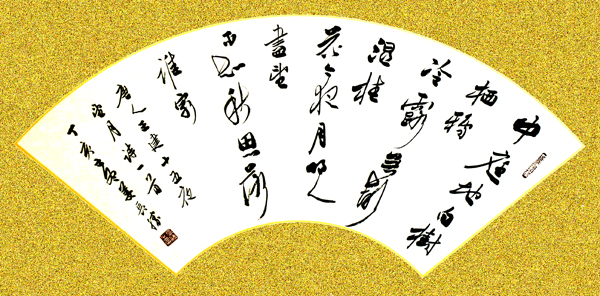 中庭地白樹
栖鴉
冷露無聲
湿桂
花今夜月明人
盡望
不知秋思落
誰家
唐人王建十五夜
望月诗一首
丁亥